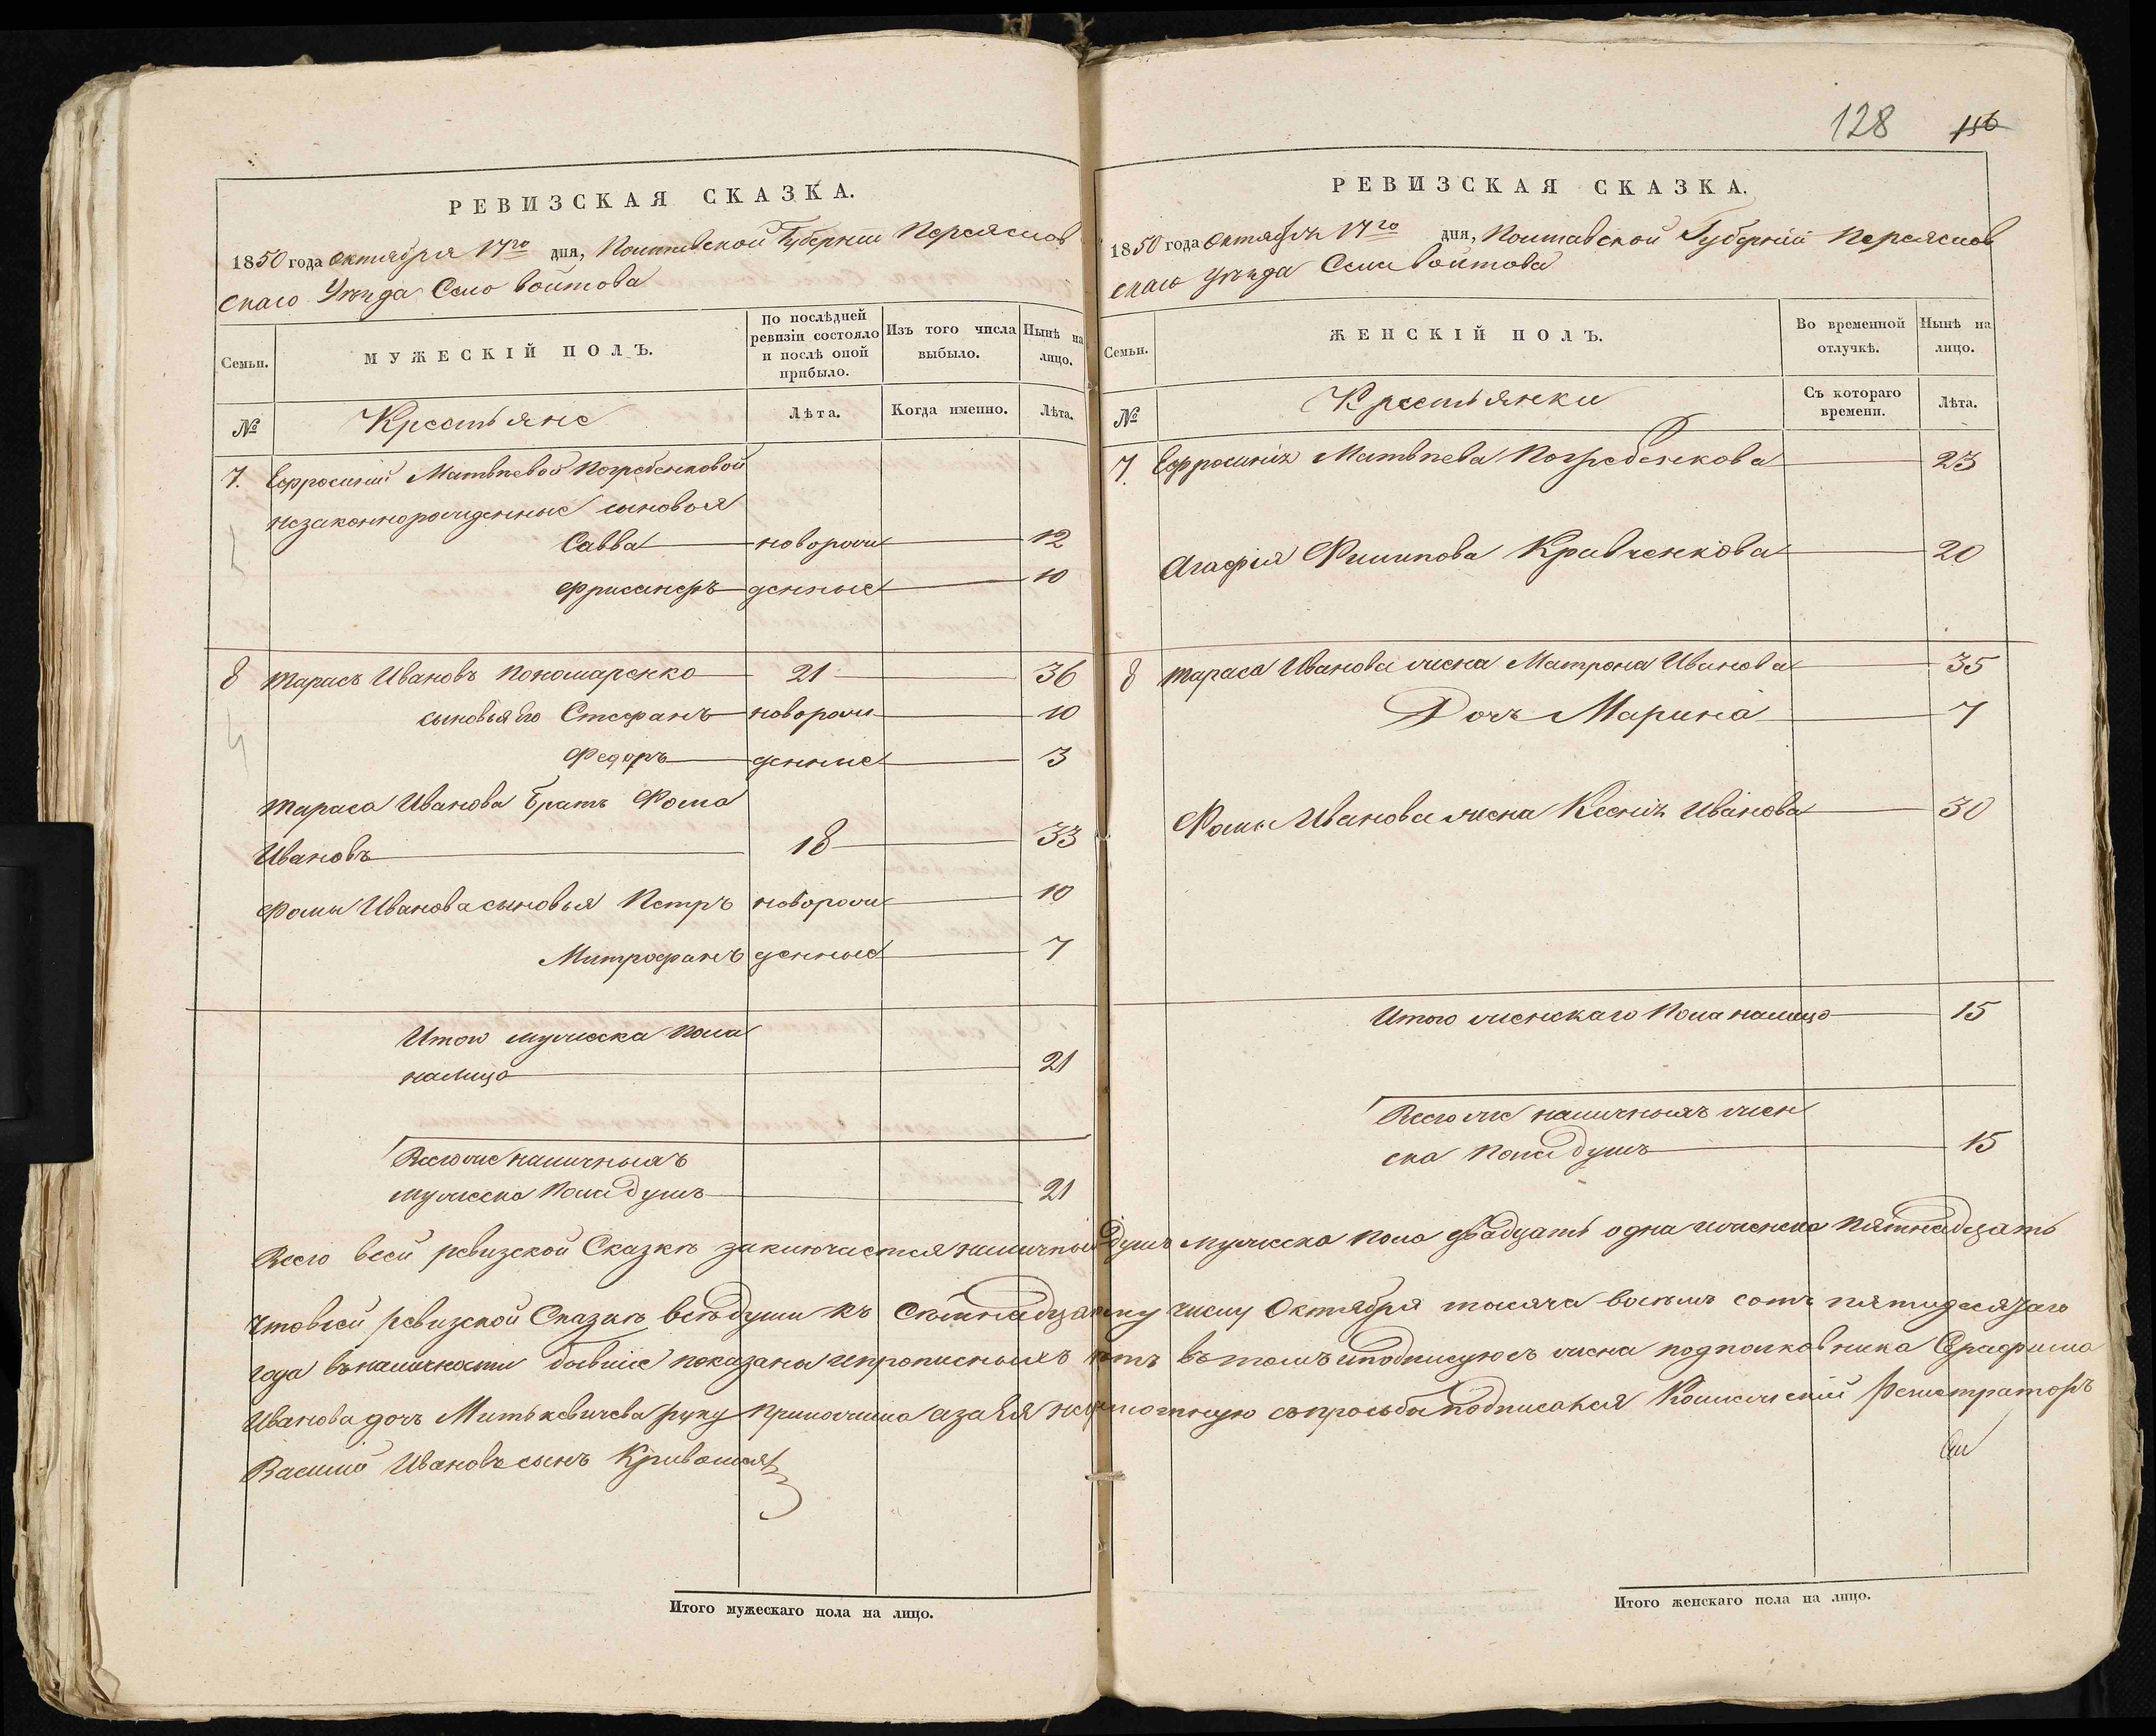 128 156
РЕВИЗСКАЯ СКАЗКА.
1850 года Октября 17го дня, Полтавской Губернии Переяслов
скаго Уезда Село Войтова
Семьи.
МУЖЕСКІЙ ПОЛЪ.
По послѣдней ревизіи состояло и послѣ оной прибыло.
Изъ того числа выбыло.
Нынѣ на лицо.
№
Крестьяне
Лѣта.
Когда именно.
Лѣта.
7. Ефросинии Матвѣевой Погребенковой
незаконнорожденные сыновья
Савва новорож 12
денные 10
8 Тарасъ Ивановъ Пономаренко 21 36
сыновья его Стефанъ новорож 10
Федоръ денные 3
Тараса Иванова братъ Фома
Ивановъ 18 33
Фомы Иванова сыновья Петръ новорож 10
Митрофанъ денные 7
Итого мужеска пола
налицо 21
Всего же наличныхъ
мужеска пола душъ 21
РЕВИЗСКАЯ СКАЗКА.
1850 года Октября 17го дня, Полтавской Губерніи Переяслов
скаго Уѣзда Села Войтова
Семьи.
ЖЕНСКІЙ ПОЛЪ.
Во временной отлучкѣ.
Нынѣ на лицо.
№
Крестьянки
Съ котораго времени.
Лѣта.
7. Ефросинія Матвѣева Погребенкова 23
Агафія Филипова Кривченкова 20
8 Тараса Иванова жена Матрона Иванова 35
Дочь Марина 7
Фомы Иванова жена Ксенія Иванова 30
Итого женскаго пола налицо 15
Всего же наличныхъ жен
ска пола душъ 15
Всего въ сей ревизской Сказкѣ заключается наличныхъ душъ мужеска пола двадцать одна и женска пятнадцать
Что въ сей ревизской Сказкѣ всѣ души къ семнадцатому числу Октября тысяча восемь сотъ пятидесятаго
года въ наличности бывшіе показаны и прописныхъ нѣтъ въ томъ и подписуюсь жена подполковника Серафима
Иванова дочь Митькевичева руку приложила а за нея неграмотную съ просьбы подписался Коллежскій Регистраторъ
Василий Ивановъ сынъ Кривошея
Итого мужескаго пола на лицо.
Итого женскаго пола на лицо.